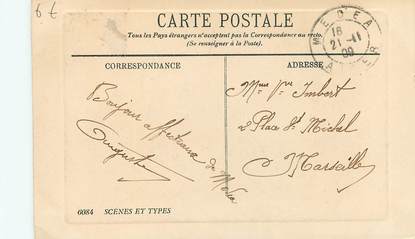 6 €
CARTE POSTALE
Tous les Pays étrangers n'acceptent pas la Correspondance au recto.
(Se renseigner à la Poste).
MEDEA
16
21-11
09
ALGER
CORRESPONDANCE
ADRESSE
Bonjour affectueux de
Auguste
Mme Vve Imbert
2 Place St Michel
Marseille
6084 SCENES ET TYPES